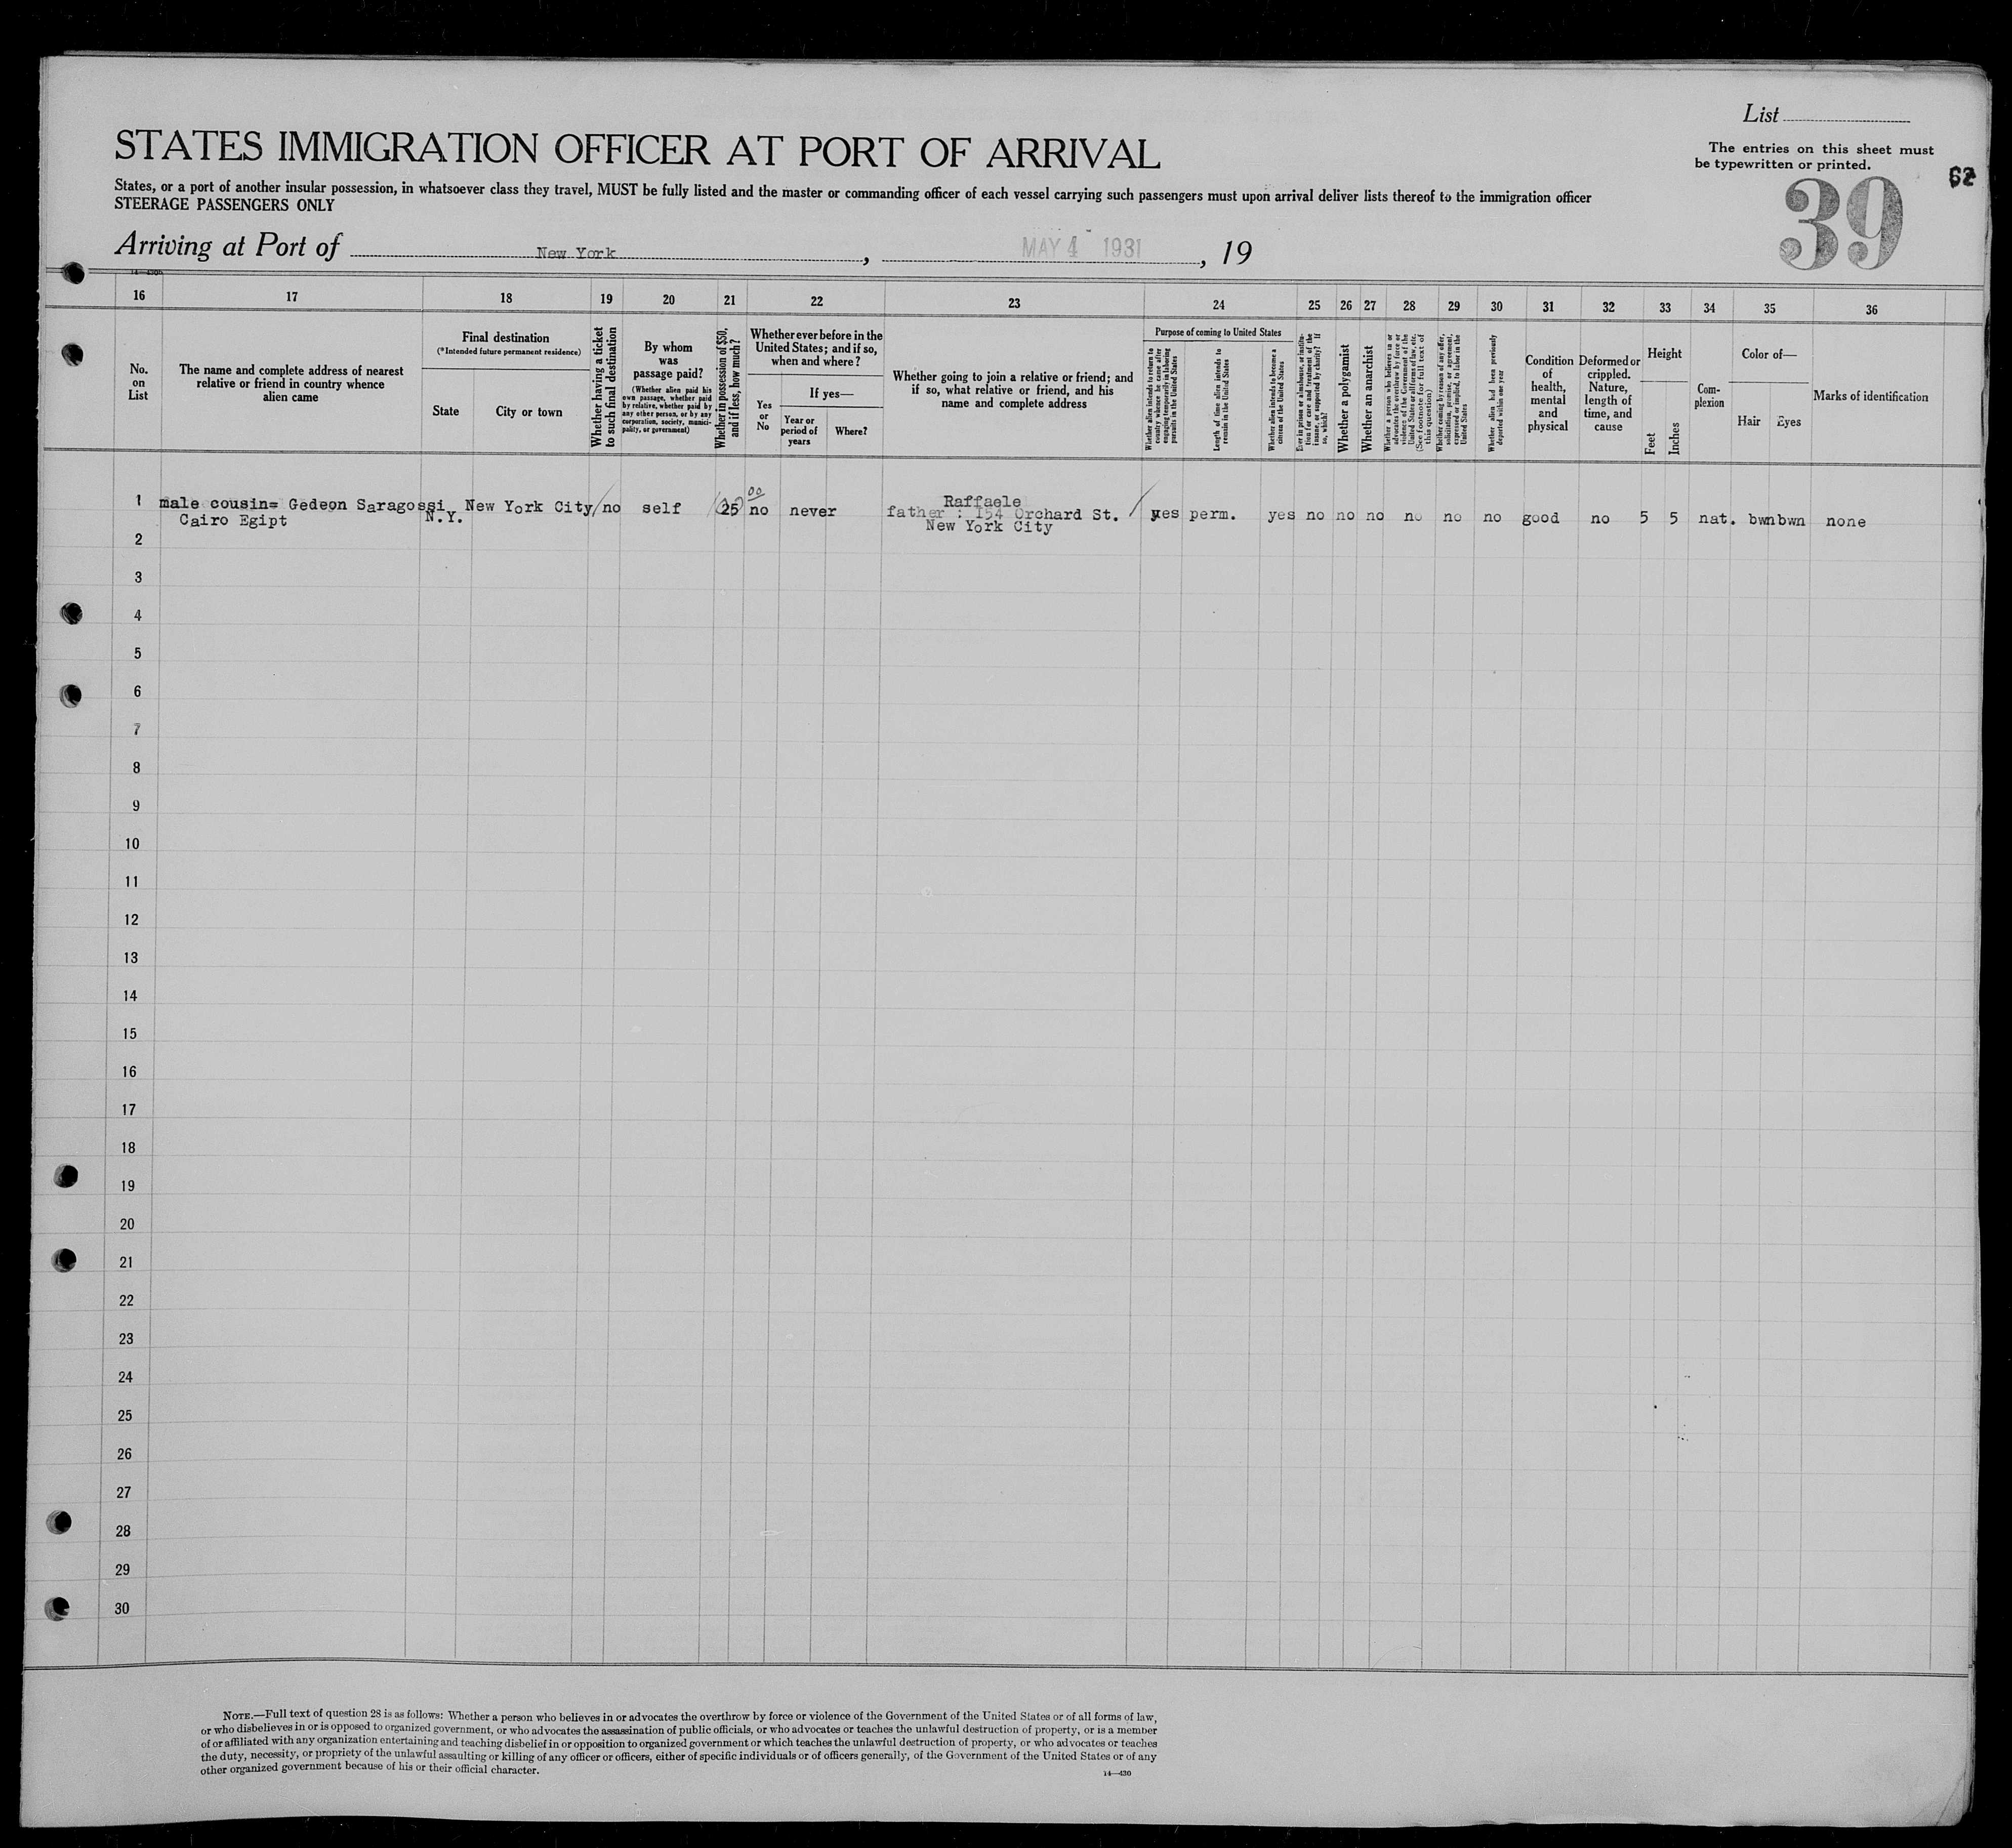 List
The entries on this sheet must
be typewritten or printed.
39
STATES IMMIGRATION OFFICER AT PORT OF ARRIVAL
States, or a port of another insular possession, in whatsoever class they travel, MUST be fully listed and the master or commanding officer of each vessel carrying such passengers must upon arrival deliver lists thereof to the immigration officer
STEERAGE PASSENGERS ONLY
Arriving at Port of New York, MAY 4 1931, 19
16 17 18 19 20 21 22 23 24 25 26 27 28 29 30 31 32 33 34 35 36
No.
on
List
The name and complete address of nearest
relative or friend in country whence
alien came
Final destination
(*Intended future permanent residence)
State
City or town
Whether having a ticket
to such final destination
By whom
was
passage paid?
(Whether alien paid his
own passage, whether paid
by relative, whether paid by
any other person, or by any
corporation, society, munici-
pality, or government)
Whether in possession of $50,
and if less, how much?
Whether ever before in the
United States; and if so,
when and where?
Yes
or
No
If yes—
Year or
period of
years
Where?
Whether going to join a relative or friend; and
if so, what relative or friend, and his
name and complete address
Purpose of coming to United States
Whether alien intends to return to
country whence he came after
engaging temporarily in laboring
pursuits in the United States
Length of time alien intends to
remain in the United States
Whether alien intends to become a
citizen of the United States
Ever in prison or almshouse, or institu-
tion for care and treatment of the
insane, or supported by charity? If
so, which?
Whether a polygamist
Whether an anarchist
Whether a person who believes in or
advocates the overthrow by force or
violence of the Government of the
United States or all forms of law, etc.
(See footnote for full text of
this question)
Whether coming by reason of any offer,
solicitation, promise, or agreement,
expressed or implied, to labor in the
United States
Whether alien had been previously
deported within one year
Condition
of
health,
mental
and
physical
Deformed or
crippled.
Nature,
length of
time, and
cause
Height
Feet
Inches
Com-
plexion
Color of—
Hair
Eyes
Marks of identification
00
1 male cousin= Gedeon Saragossi N.Y. New York City no self 25 no never Raffaele
Cairo Egipt father : 154 Orchard St. yes perm. yes no no no no no no good no 5 5 nat. bwn bwn none
New York City
2
3
4
5
6
7
8
9
10
11
12
13
14
15
16
17
18
19
20
21
22
23
24
25
26
27
28
29
30
NOTE.—Full text of question 28 is as follows: Whether a person who believes in or advocates the overthrow by force or violence of the Government of the United States or of all forms of law,
or who disbelieves in or is opposed to organized government, or who advocates the assassination of public officials, or who advocates or teaches the unlawful destruction of property, or is a member
of or affiliated with any organization entertaining and teaching disbelief in or opposition to organized government or which teaches the unlawful destruction of property, or who advocates or teaches
the duty, necessity, or propriety of the unlawful assaulting or killing of any officer or officers, either of specific individuals or of officers generally, of the Government of the United States or of any
other organized government because of his or their official character.
14—430